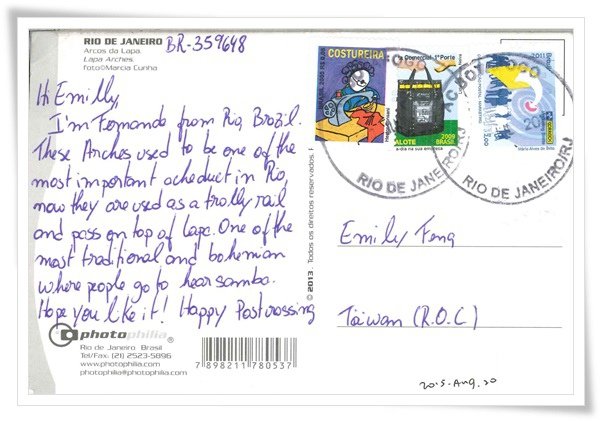 RIO DE JANEIRO BR-359648
Arcos da Lapa.
Lapa Arches.
foto©Marcia Cunha
Hi Emilly,
I'm Fernando from Rio, Brazil.
These Arches used to be one of the
most important acheduct in Rio,
now they are used as a trolly rail
and pass on top of Lapa. One of the
most traditional and bohemian
where people go to hear samba.
Hope you like it! Happy Postcrossing
photophilia
Rio de Janeiro Brasil
Tel/Fax: (21) 2523-5896
www.photophilia.com
photophilia@photophilia.com
7 898211 780537
© 2013 Todos os direitos reservados.
COSTUREIRA
Comercial 1º Porte
2009
BRASIL
2011
RIO DE JANEIRO/RJ
RIO DE JANEIRO/RJ
Emily Feng
Taiwan (R.O.C)
2015-Aug.20